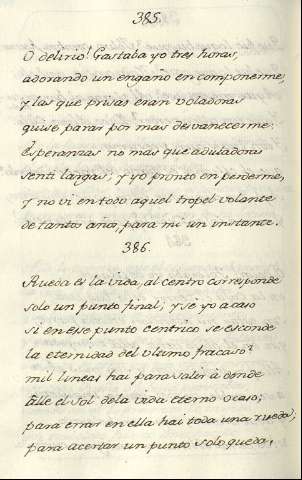 385.
O delirio! Gastaba yo tres horas,
adorando un engaño en componerme,
y las que prisas eran voladoras
quise parar por mas desvanecerme.
Esperanzas no mas que aduladoras
senti largas; y yo pronto en perderme,
y no vi en todo aquel tropel volante
de tantos años, para mi un instante.
386.
Rueda es la vida, al centro corresponde
solo un punto final; y sé yo acaso
si en esse punto centrico se esconde
la eternidad del ultimo fracaso?
mil lineas hai para salir à donde
el Sol de la vida eterno ocaso;
para errar en ella hai toda una rueda;
para acertar un punto solo queda.